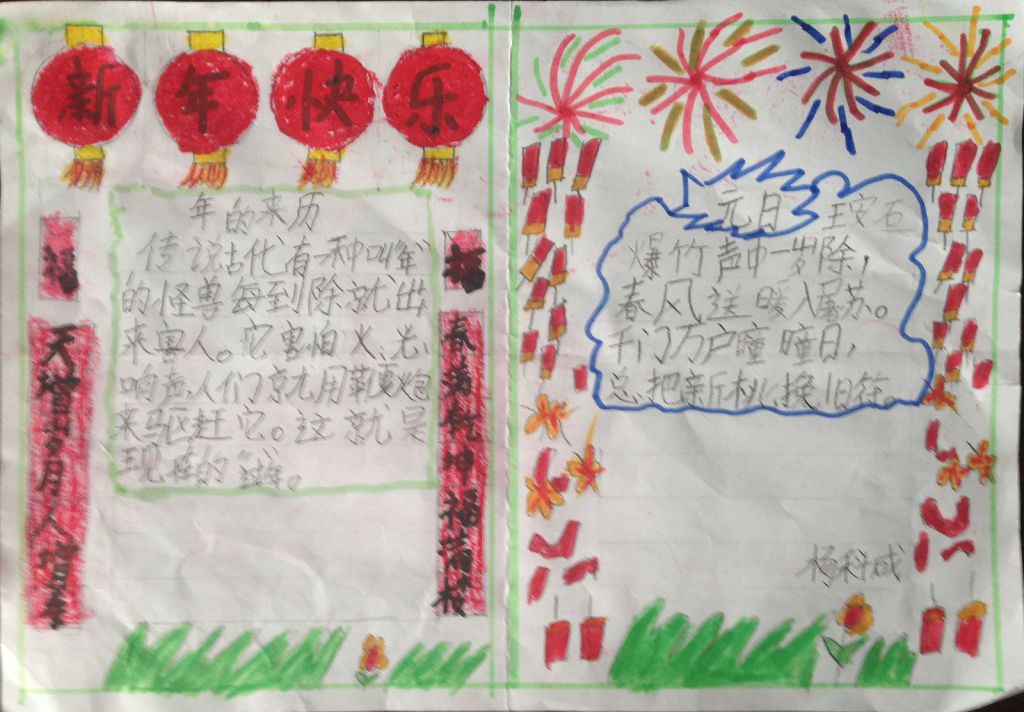 新年快乐
福
天增岁月人增寿
年的来历
传说古代有一种叫“年”
的怪兽每到除就出
来害人。它害怕火、光、
响声、人们就用鞭炮
来驱赶它。这就是
现在的“过年”。
福
春满乾坤福满楼
元日 王安石
爆竹声中一岁除，
春风送暖入屠苏。
千门万户曈曈日，
总把新桃换旧符。
杨科成